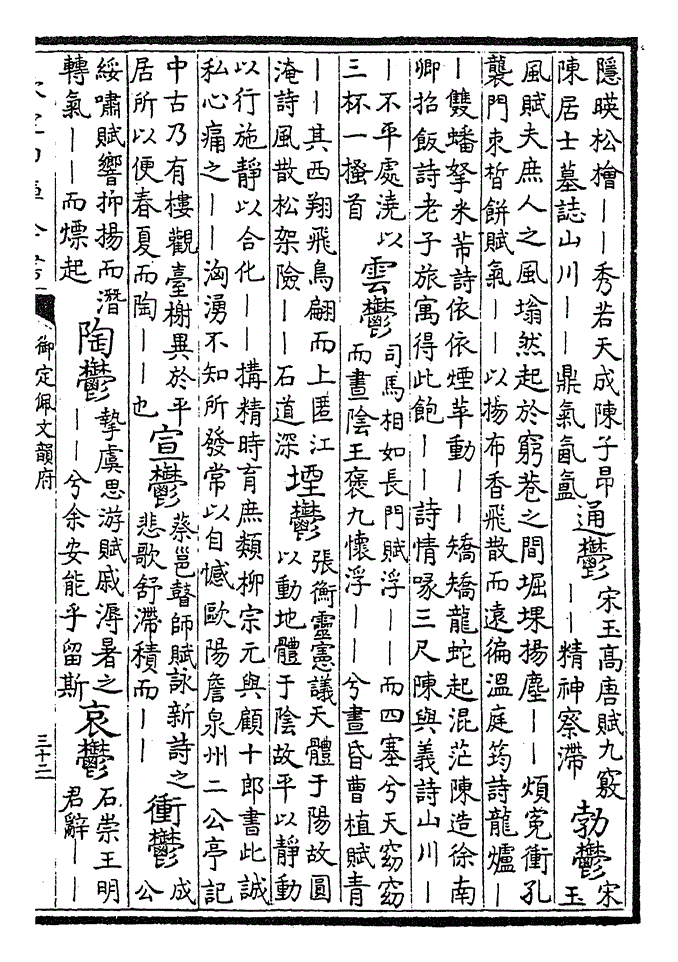 隱暎松檜——秀若天成陳子昂
陳居士墓誌山川——鼎氣氤氳
通鬱
宋玉高唐賦九竅
——精神察滯
勃鬱
宋
玉
風賦夫庶人之風塕然起於窮巷之間堀堁揚塵——煩寃衝孔
襲門束皙餅賦氣——以揚布香飛散而遠徧溫庭筠詩龍爐—
—雙蟠拏米芾詩依依煙草動——矯矯龍蛇起混茫陳造徐南
卿招飯詩老子旅寓得此飽——詩情喙三尺陳與義詩山川—
—不平處澆以
三杯一搔首
雲鬱
司馬相如長門賦浮——而四塞兮天窈窈
而晝陰王褒九懷浮——兮晝昏曹植賦青
——其西翔飛鳥翩而上匿江
淹詩風散松架險——石道深
堙鬱
張衡靈憲議天體于陽故圓
以動地體于陰故平以靜動
以行施靜以合化——搆精時育庶類柳宗元與顧十郎書此誠
私心痛之——洶湧不知所發常以自憾歐陽詹泉州二公亭記
中古乃有樓觀臺榭異於平
居所以便春夏而陶——也
宣鬱
蔡邕瞽師賦詠新詩之
悲歌舒滯積而——
衝鬱
成
公
綏嘯賦響抑揚而潛
轉氣——而熛起
陶鬱
摯虞思游賦戚溽暑之
——兮余安能乎留斯
哀鬱
石崇王明
君辭——
御定佩文韻府
三十三